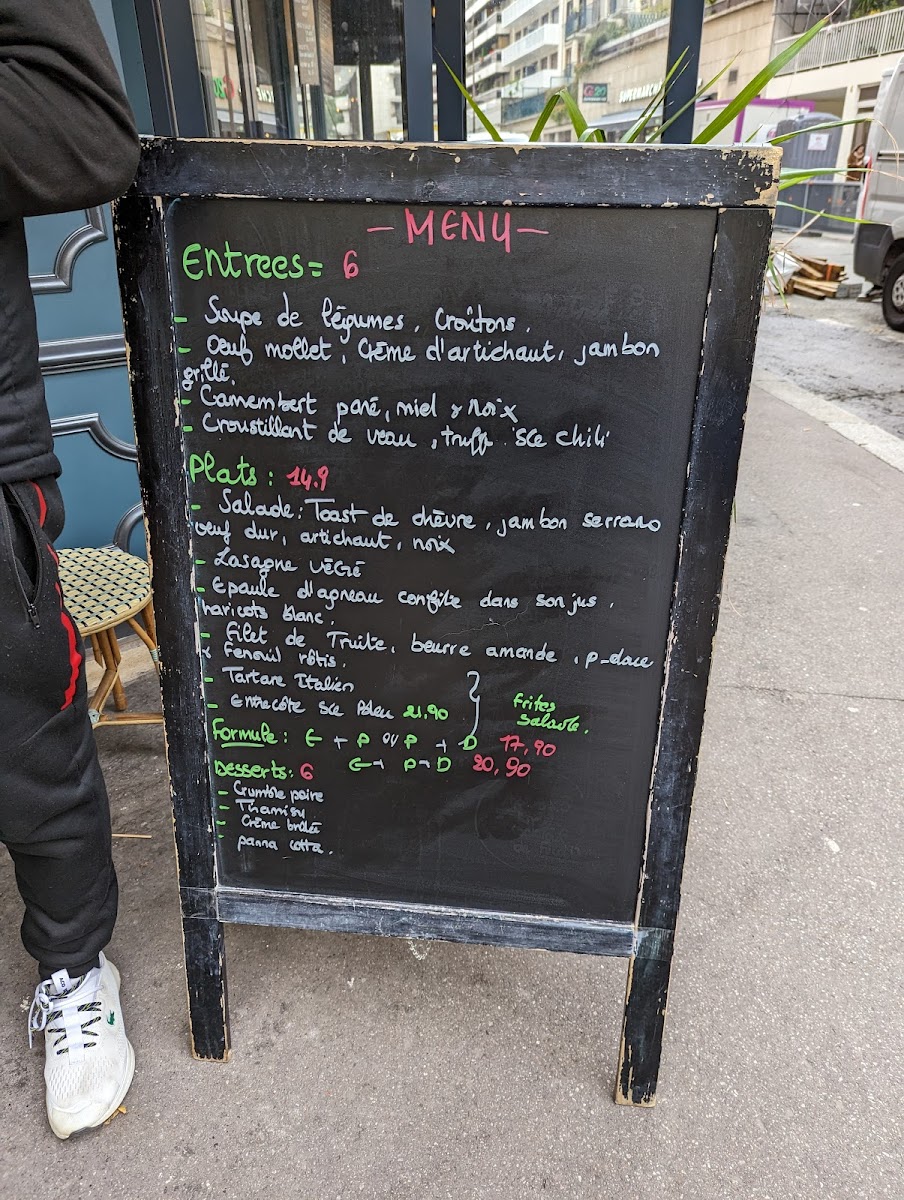 - MENU -
Entrees = 6
- Soupe de légumes, Croûtons.
- Oeuf mollet, Crème d'artichaut, jambon
grillé.
- Camembert pané, miel & noix
- Croustillant de veau, truff sce chili
Plats : 14.9
- Salade : Toast de chèvre, jambon serrano
oeuf dur, artichaut, noix
- Lasagne VÉGÉ
- Epaule d'agneau confite dans son jus,
haricots blanc.
- Filet de Truite, beurre amande, p-douce
& Fenouil rôtis.
- Tartare Italien
- Entrecôte sce Bleu 21,90
frites
Salade.
Formule : E + P ou P + D 17,90
E + P + D 20,90
Desserts : 6
- Crumble poire
- Thamisu
- Crème brûlée
panna cotta.
G20